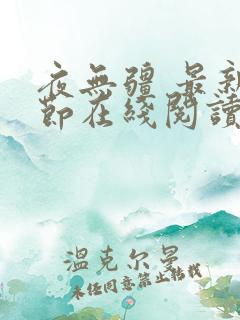 夜無疆 最新
節在綫閱讀
溫克尔曼
未经同意禁止转载